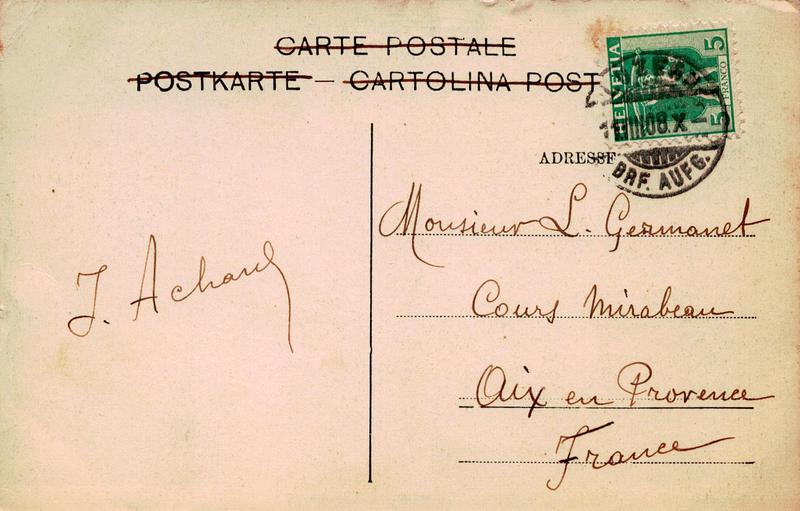 CARTE POSTALE
POSTKARTE — CARTOLINA POST
HELVETIA
5 FRANCO 5
08.X
BRF. AUFG.
ADRESSE
Monsieur L. Germanet
Cours Mirabeau
Aix en Provence
France
J. Achard